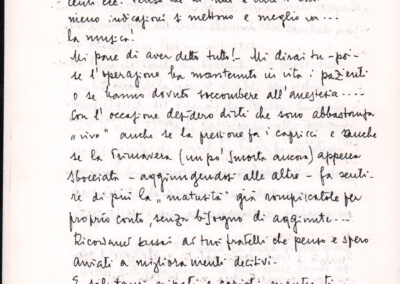 meno indicazioni si mettono e meglio va...
la musica!
Mi pare di aver detto tutto! - Mi dirai tu - poi -
se l'operazione ha mantenuto in vita i pazienti
o se hanno dovuto soccombere all'anestesia....-
Con l'occasione desidero dirti che sono abbastanza
„vivo" anche se la pressione fa i capricci e anche
se la Primavera (un po' smorta ancora) appena
sbocciata - aggiungendosi alle altre - fa senti-
re di più la „maturità" già rompiscatole per
proprio conto, senza bisogno di aggiunte...
Ricordami ai tuoi fratelli che penso e spero
avviati a miglioramenti decisivi.